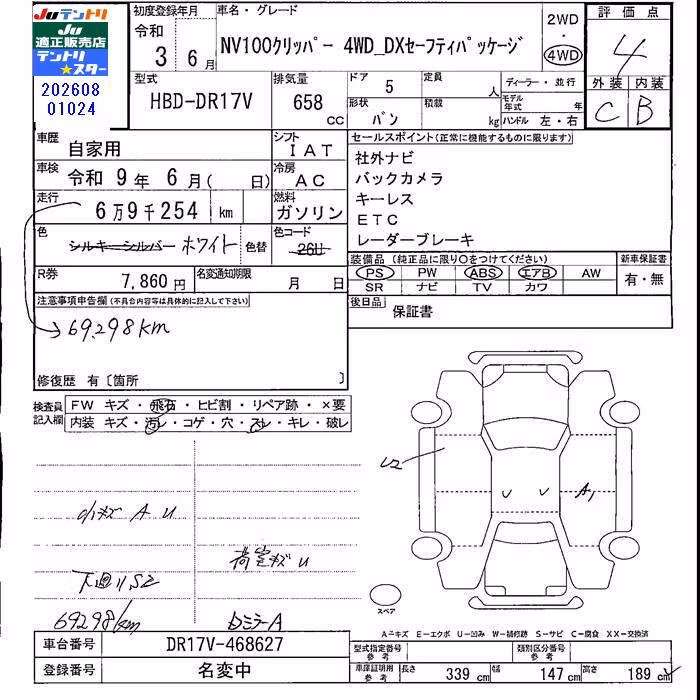 Juテントリ
Ju
適正販売店
テントリ
スター
202608
01024
初度登録年月
令和
3年 6月
車名・グレード
NV100クリッパー 4WD_DXセーフティパッケージ
2WD
・
4WD
評価点
4
外装 内装
C B
型式
HBD-DR17V
排気量
658
CC
ドア 5
形状 バン
定員 人
積載 kg
ディーラー・並行
モデル年式 年
ハンドル 左・右
車歴 自家用
シフト IAT
車検 令和 9年 6月( 日)
冷房 AC
走行 6万9千254 km
燃料 ガソリン
色 シルキーシルバー ホワイト 色替
色コード 26U
R券 7,860円
名変通知期限 月 日
セールスポイント(正常に機能するものに限ります)
社外ナビ
バックカメラ
キーレス
ETC
レーダーブレーキ
装備品 (純正品に限り○をつけてください)
PS PW ABS エアB AW
SR ナビ TV カワ
新車保証書
有・無
後日品 保証書
注意事項申告欄(不具合内容等は具体的に記入して下さい)
69,298km
修復歴 有〔箇所 〕
検査員記入欄
FW キズ・飛石・ヒビ割・リペア跡・×要
内装 キズ・汚レ・コゲ・穴・スレ・キレ・破レ
小キズ A U
荷室キズ U
下廻りS2
69298km
bミラーA
U2
U U
A1
スペア
A−キズ E−エクボ U−凹み W−補修跡 S−サビ C−腐食 XX−交換済
車台番号 DR17V-468627
登録番号 名変中
型式指定番号参考
類別区分番号参考
車庫証明用参考
長さ 339 cm 幅 147 cm 高さ 189 cm